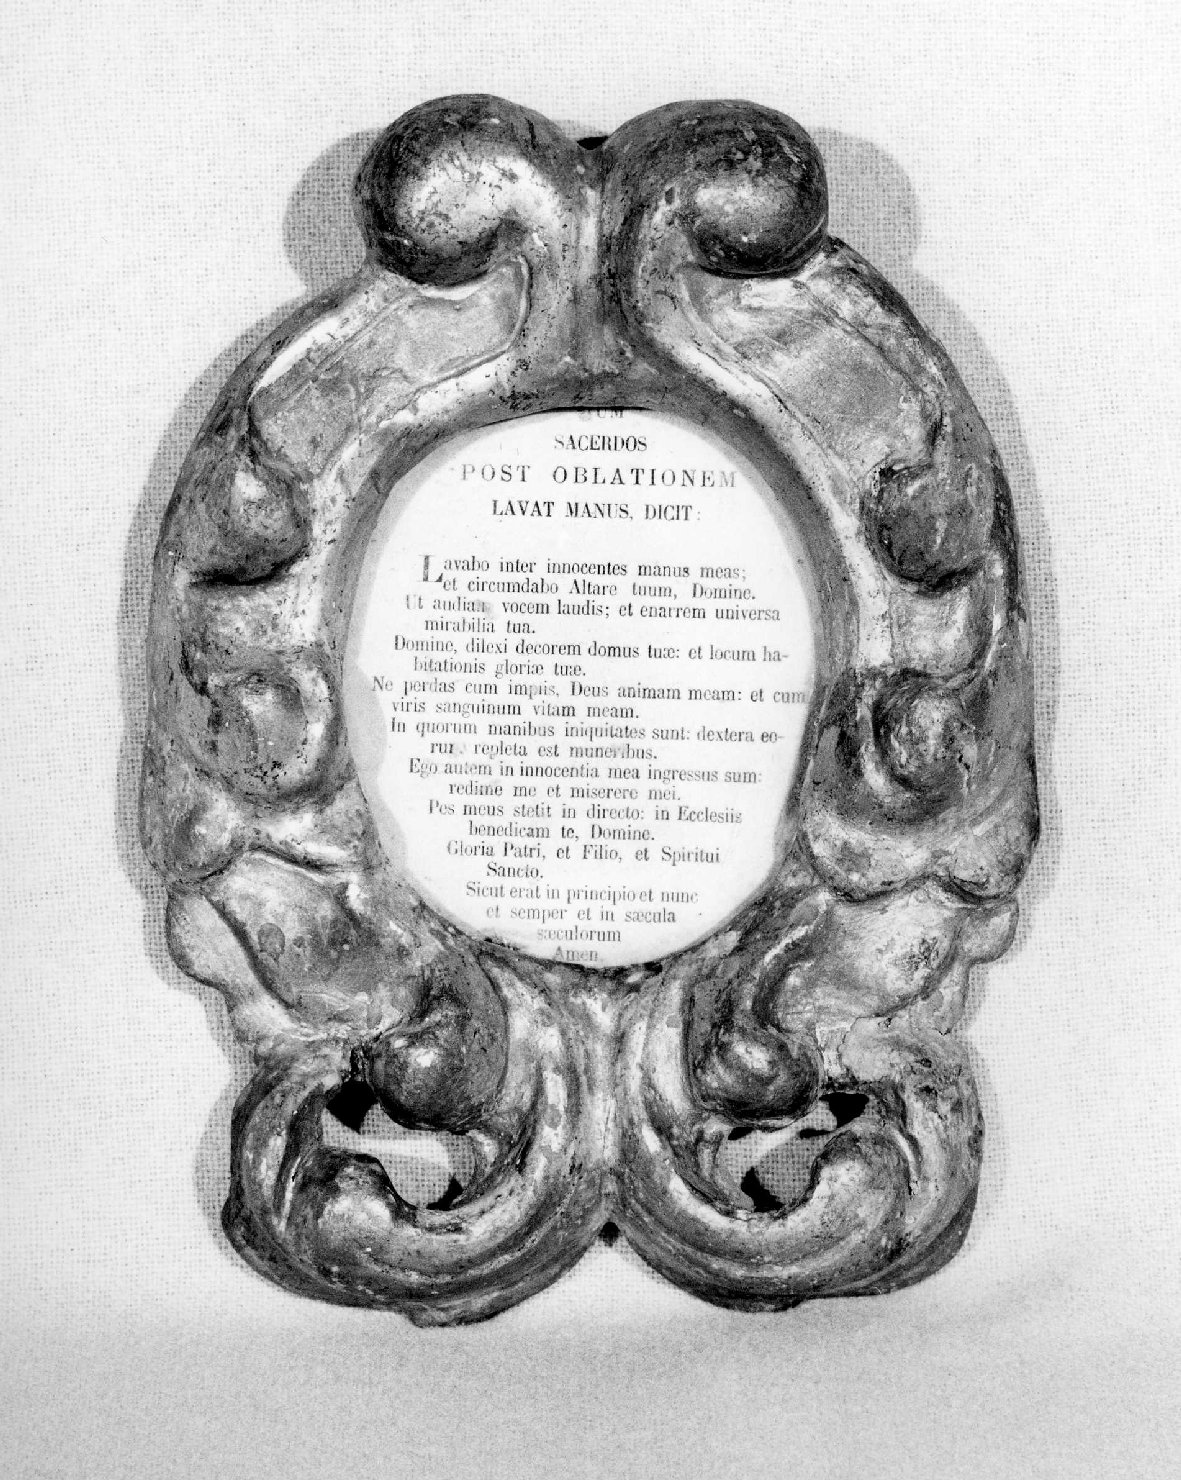 CUM
SACERDOS
POST OBLATIONEM
LAVAT MANUS, DICIT:
Lavabo inter innocentes manus meas;
et circumdabo Altare tuum, Domine.
Ut audiam vocem laudis; et enarrem universa
mirabilia tua.
Domine, dilexi decorem domus tuæ: et locum ha-
bitationis gloriæ tuæ.
Ne perdas cum impiis, Deus animam meam: et cum
viris sanguinum vitam meam.
In quorum manibus iniquitates sunt: dextera eo-
rum repleta est muneribus.
Ego autem in innocentia mea ingressus sum:
redime me et miserere mei.
Pes meus stetit in directo: in Ecclesiis
benedicam te, Domine.
Gloria Patri, et Filio, et Spiritui
Sancto.
Sicut erat in principio et nunc
et semper et in sæcula
sæculorum
Amen.